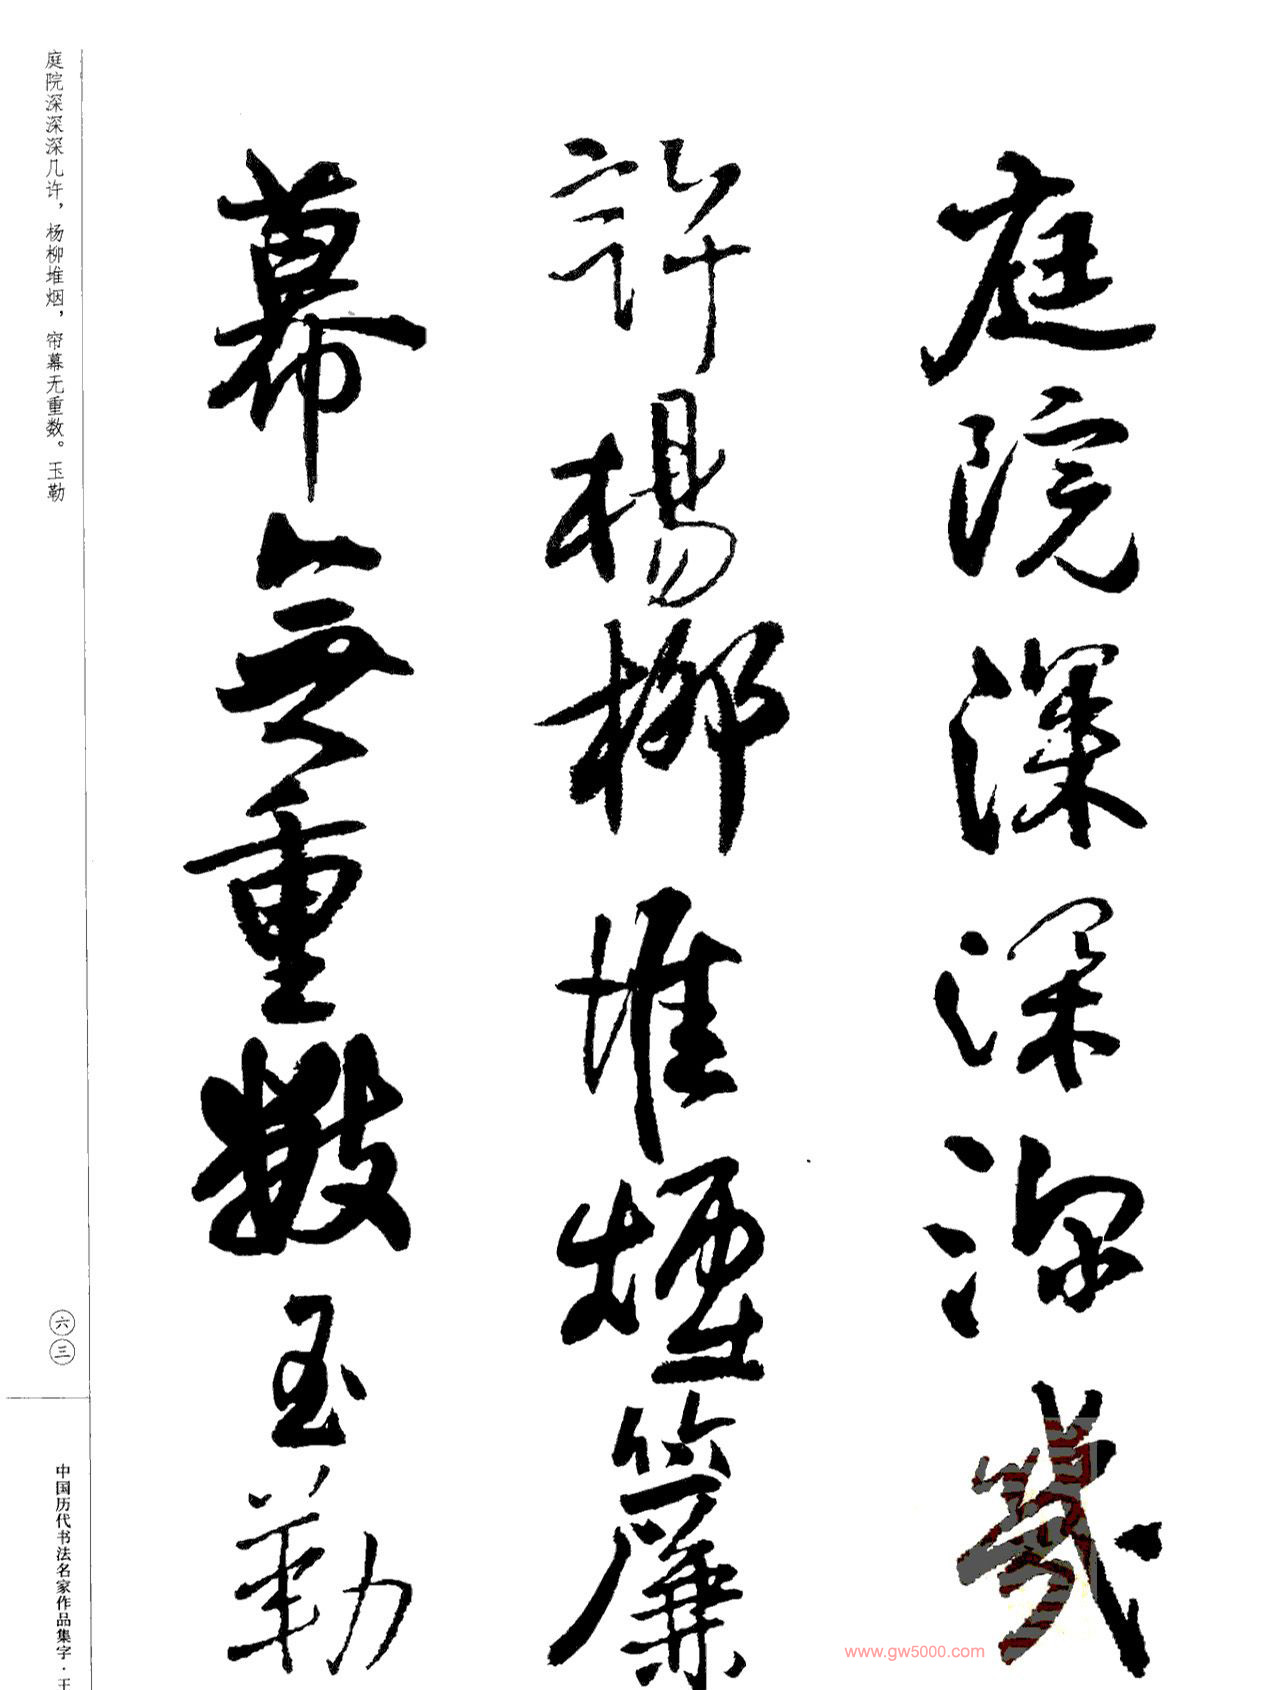 庭院深深深幾
許楊柳堆煙簾
幕無重數玉勒
庭院深深深几许，杨柳堆烟，帘幕无重数。玉勒
六三
中国历代书法名家作品集字·王
www.gw5000.com